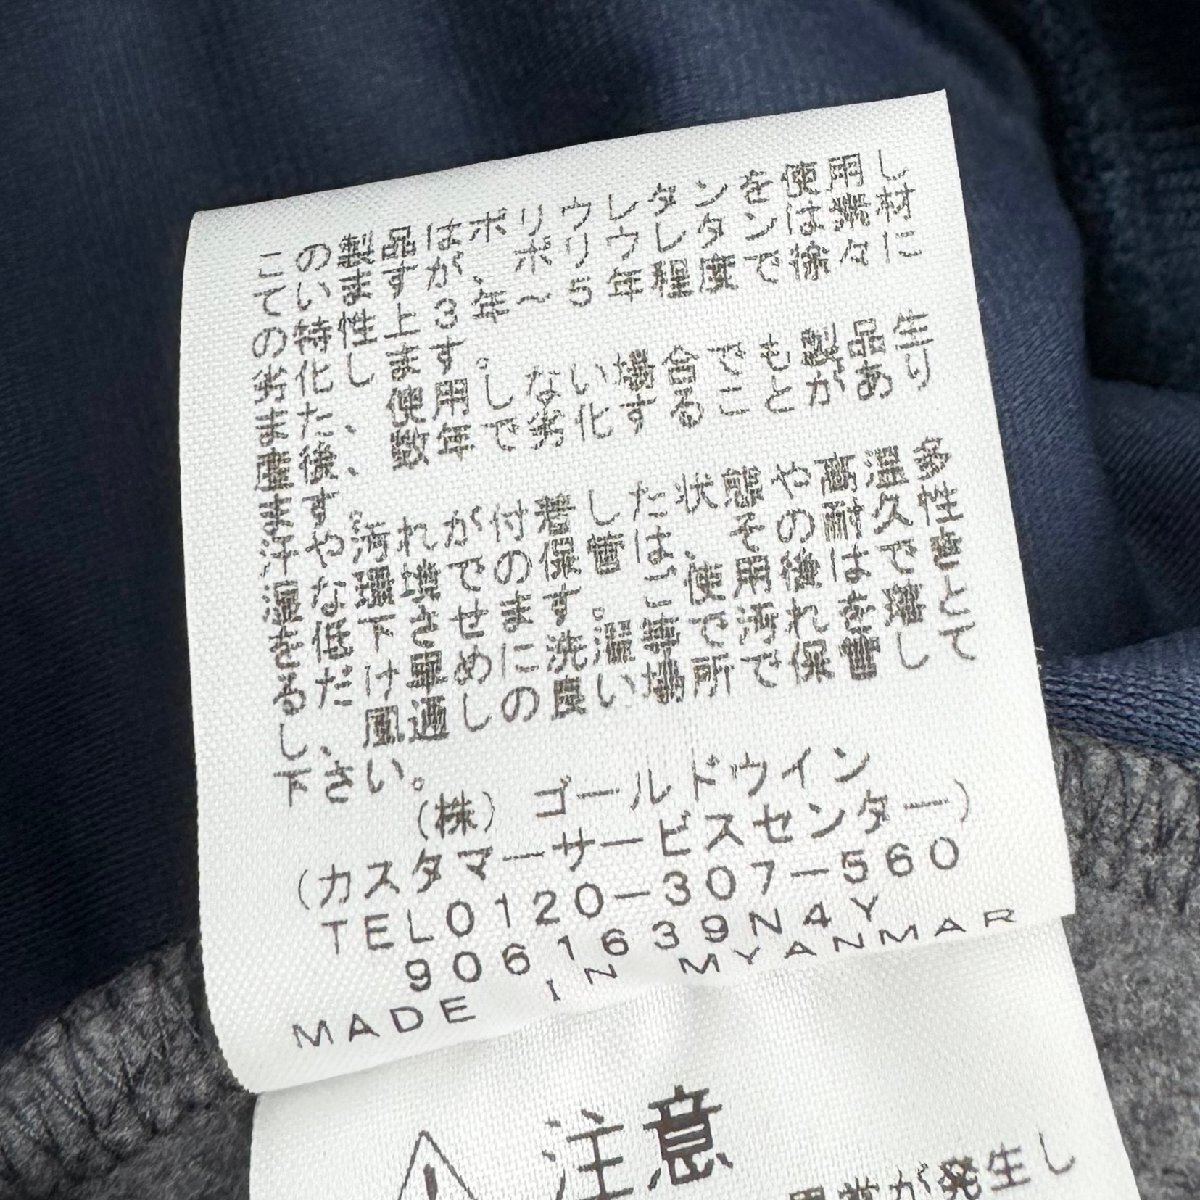 この製品はポリウレタンを使用し
ていますが、ポリウレタンは素材
の特性上3年～5年程度で徐々に
劣化します。
また、使用しない場合でも製品生
産後、数年で劣化することがあり
ます。
汗や汚れが付着した状態や高温多
湿な環境での保管は、その耐久性
を低下させます。ご使用後はでき
るだけ早めに洗濯等で汚れを落と
し、風通しの良い場所で保管して
下さい。
(株) ゴールドウイン
(カスタマーサービスセンター)
TEL0120-307-560
9061639N4Y
MADE IN MYANMAR
注意
が発生し